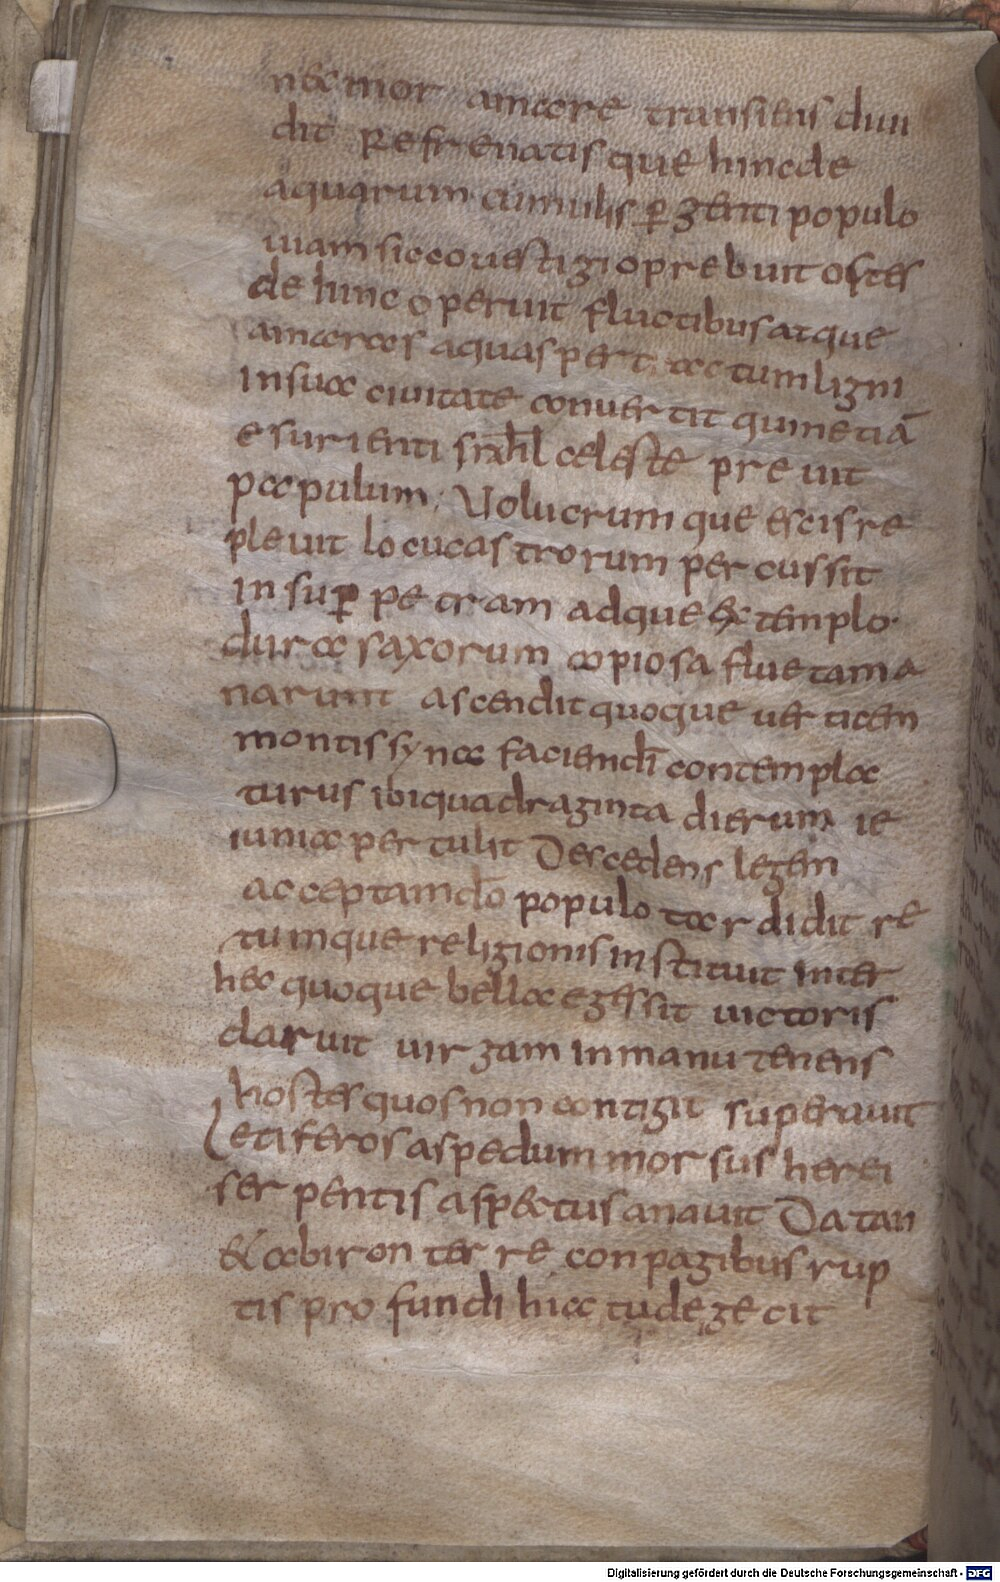 nec mor amare transiens diui
dit Refrenatisque hincde
aquarum cumulis ꝑ genti populo
uiam sicco uestigio prebuit ostes
de hinc operuit fluctibus atque
amaras aquas per tactum ligni
in sua ciuitate conuertit quinetiā
esurienti srahl celeste preuit
papulum, Volucrum que escis re
pleuit locu castrorum percussit
in suꝑ petram adque extemplo.
dura saxorum copiosa flueta ma
narunt ascendit quoque uerticem
montis syna faciendi contempla
turus ibi quadraginta dierum ie
iunia pertulit Descedens legem
acceptam dō populo tardidit re
tumque religionis instituit inter
hec quoque bella egessit uictoris
daruit uirgam in manu tenens
hostes quos non contigit superauit
Letiferos aspedum morsus herei
serpentis aspectus anauit Datan
& abiron terre conpagibus rup
tis profundi hiac tudegecit
Digitalisierung gefördert durch die Deutsche Forschungsgemeinschaft - DFG